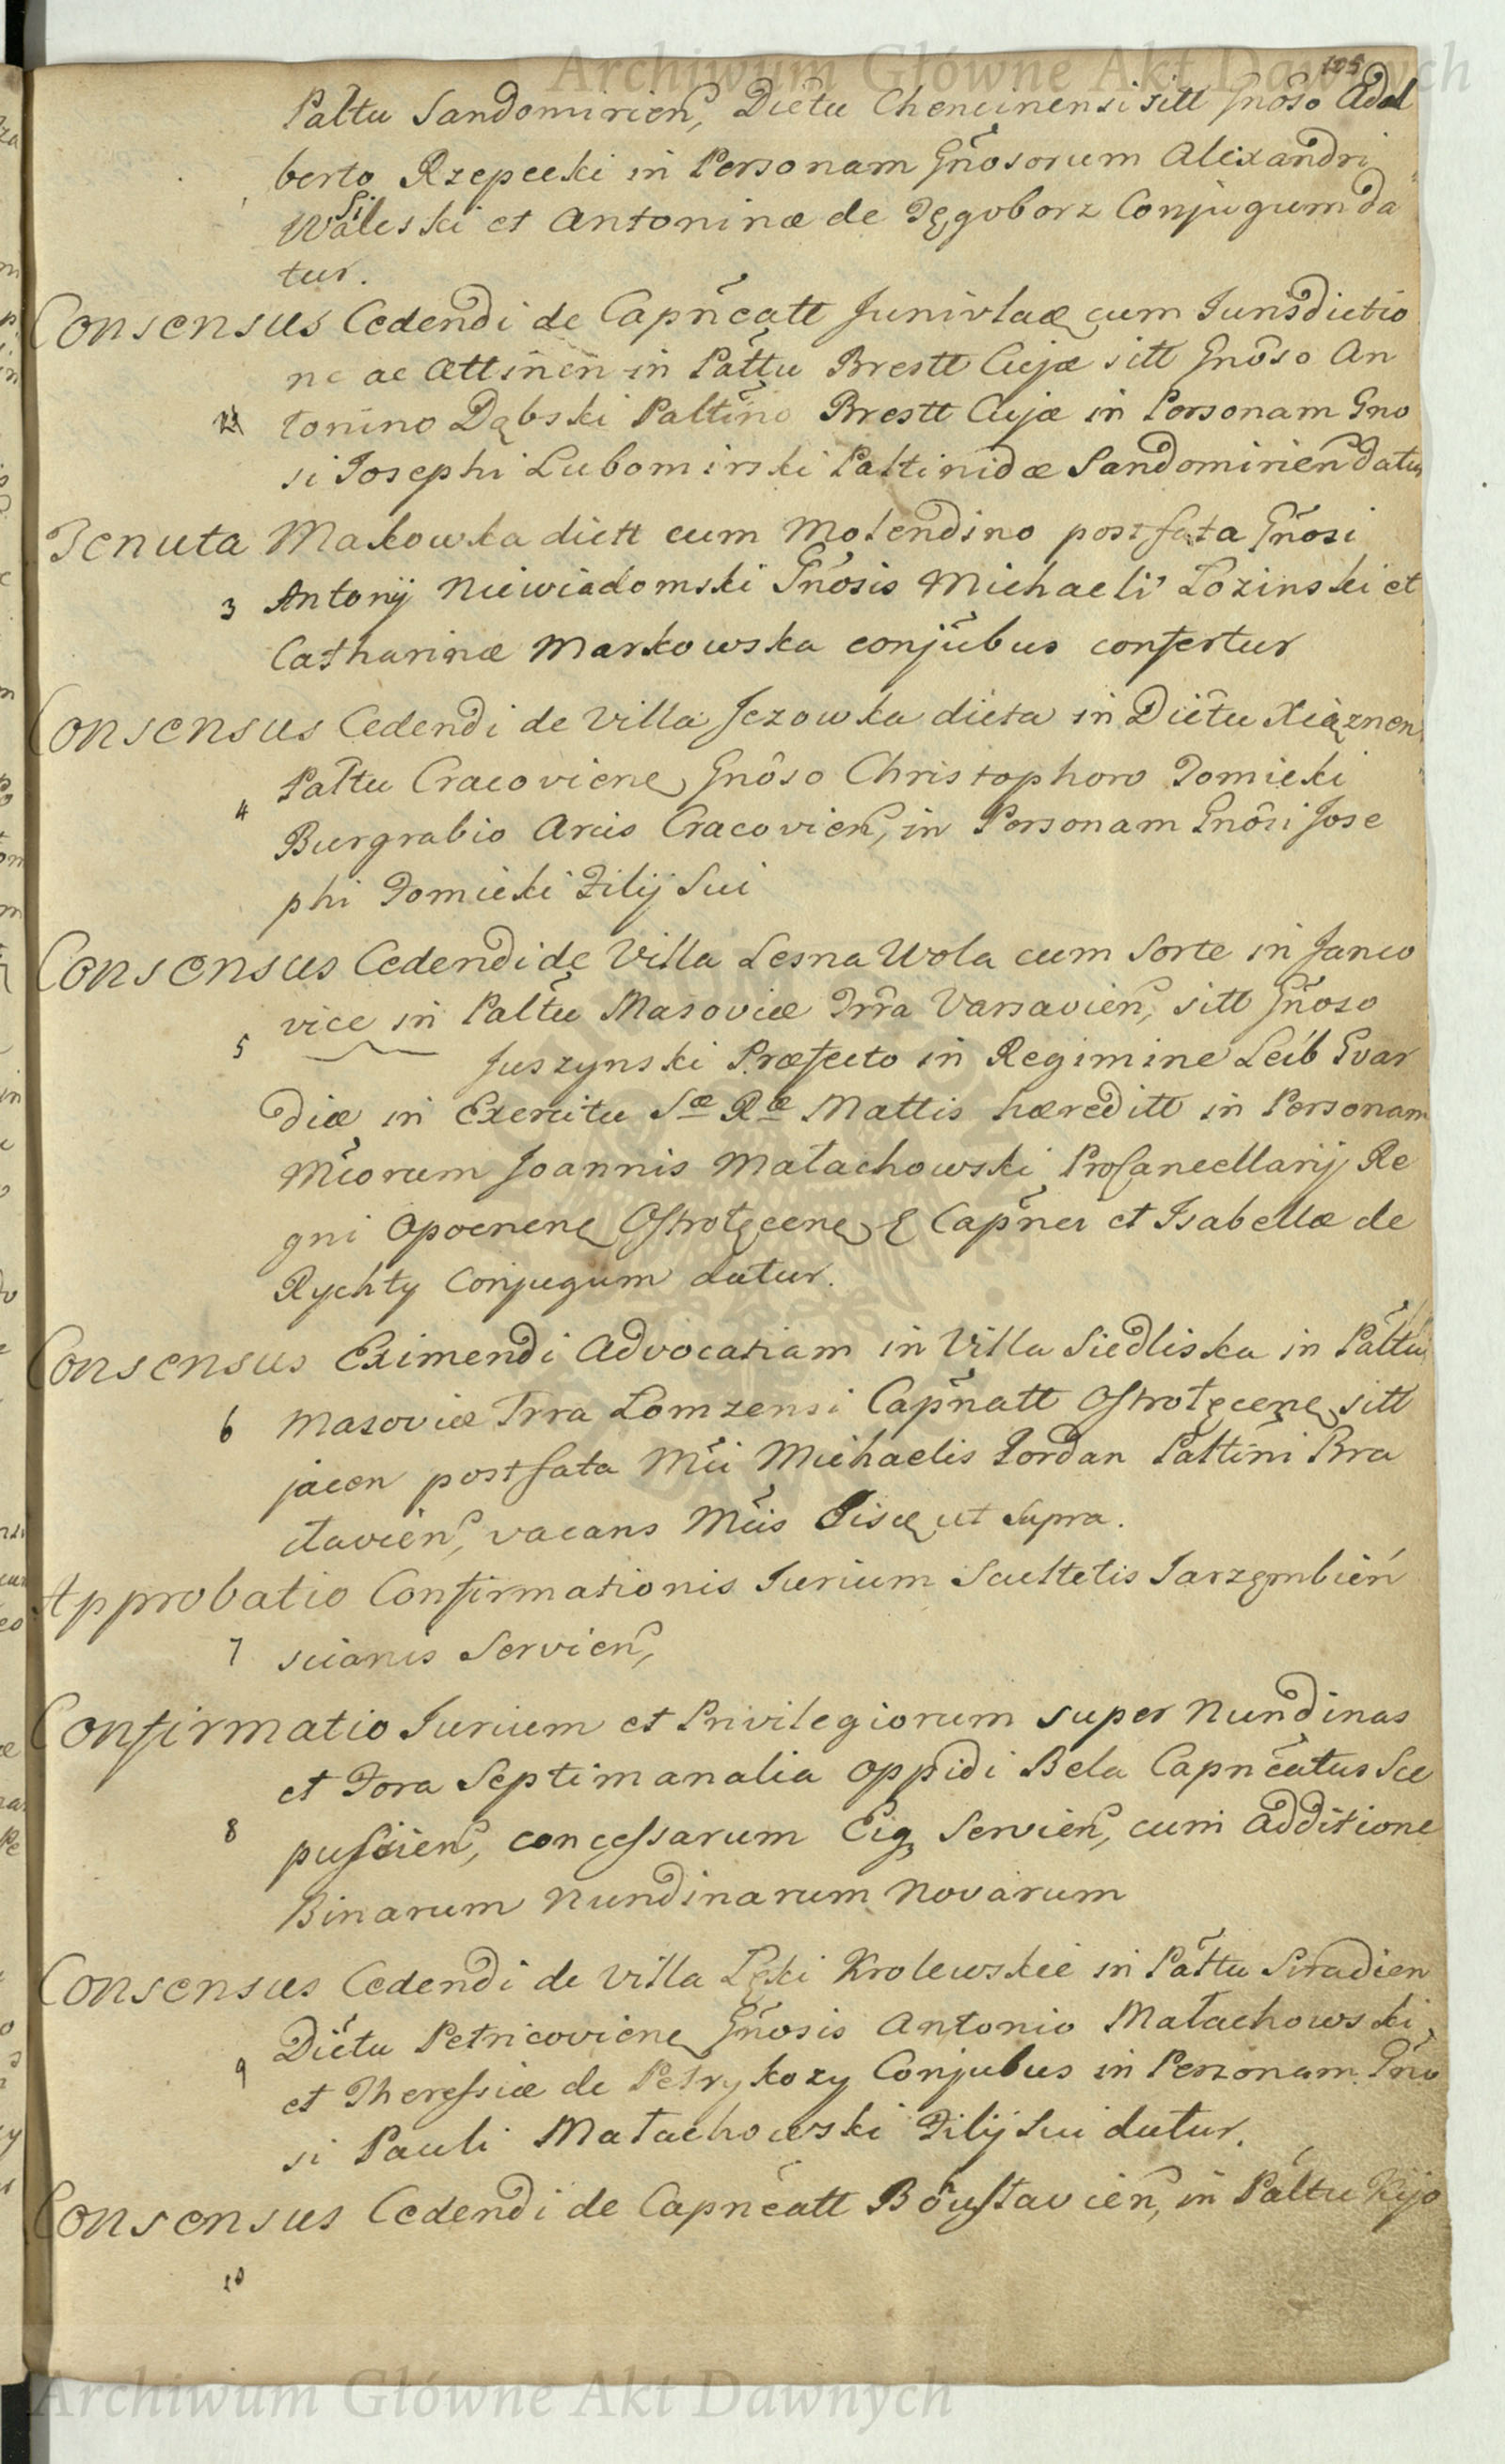 Archiwum Główne Akt Dawnych
125
Paltu Sandomirien, Dictu Chencinensi sitt Gnoso Adal
berto Rzepecki in Personam Gnosorum Alexandri
Si
Waleski et Antoninæ de Tęgoborz Conjugum da
tur.
Consensus Cedendi de Capneatt cum Iurisdictio
ne ac Attinen in Palttu Brestt Cujæ sitt Gnoso An
2
tonino Dąbski Paltino Brestt Cujæ in Personam Gno
si Josephi Lubomirski Paltinidæ Sandomirien datur
Tenuta Makowka dictt cum Molendino post fata Gnosi
3 Antonij Niewiadomski Gnosis Michaeli Lozinski et
Catharinæ Markowska conjubus confertur
Consensus Cedendi de Villa Jezowka dicta in Dictu Xiąznen
4 Palttu Cracoviene Gnoso Christophoro Tomicki
Burgrabio Arcis Cracovien, in Personam Gnosi Jose
phi Tomicki Filij Sui
Consensus Cedendi de Villa Lesna Wola cum Sorte in Janco
vice in Paltu Masoviæ Trra Varsavien, sitt Gnoso
5
Juszynski Præfecto in Regimine Leib Gvar
diæ in Exercitu Sæ Ræ Mattis hæreditt in Personam
Mcorum Joannis Małachowski Procancellarij Re
gni Opocnene Ostrołęcene & Capnei et Isabellæ de
Rychty Conjugum datur.
Consensus Eximendi Advocatiam in Villa Siedliska in Palttu
6 Masoviæ Trra Lomzensi Capnatt Ostrołęcene sitt
jacen post fata Mci Michaelis Jordan Paltini Bra
clavien, vacans Mcis ut supra.
Approbatio Confirmationis Iurium Scultetis Jarzęmbień
7 scianis Servien,
Confirmatio Iurium et Privilegiorum super Nundinas
et Fora Septimanalia Oppidi Bela Capneatus Sce
8 pusien, concessarum Eiq Servien, cum Additione
Binarum Nundinarum Novarum
Consensus Cedendi de Villa Łęki Krolewskie in Palttu Siradien
Dictu Petricoviene Gnosis Antonio Małachowski
9
et Theressiæ de Petrykozy Conjubus in Personam Gno
si Pauli Małachowski Filij Sui datur.
Consensus Cedendi de Capneatt Boustavien, in Palttu Kijo
10
Archiwum Główne Akt Dawnych